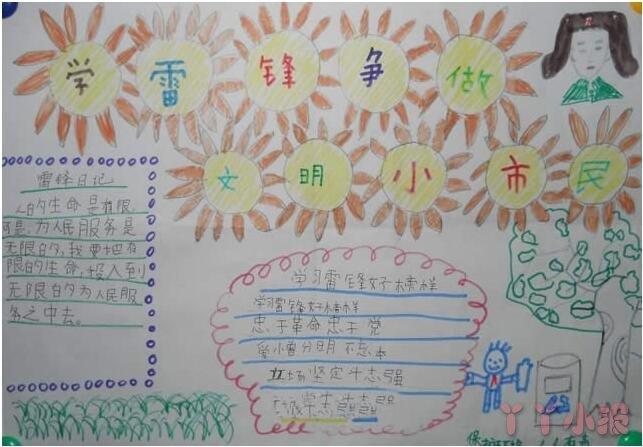 学雷锋争做
文明小市民
雷锋日记
人的生命是有限,
可是,为人民服务是
无限的,我要把有
限的生命,投入到
无限的为人民服
务之中去。
学习雷锋好榜样
学习雷锋好榜样
忠于革命忠于党
爱憎分明不忘本
立场坚定斗志强
斗志强
丫丫小报